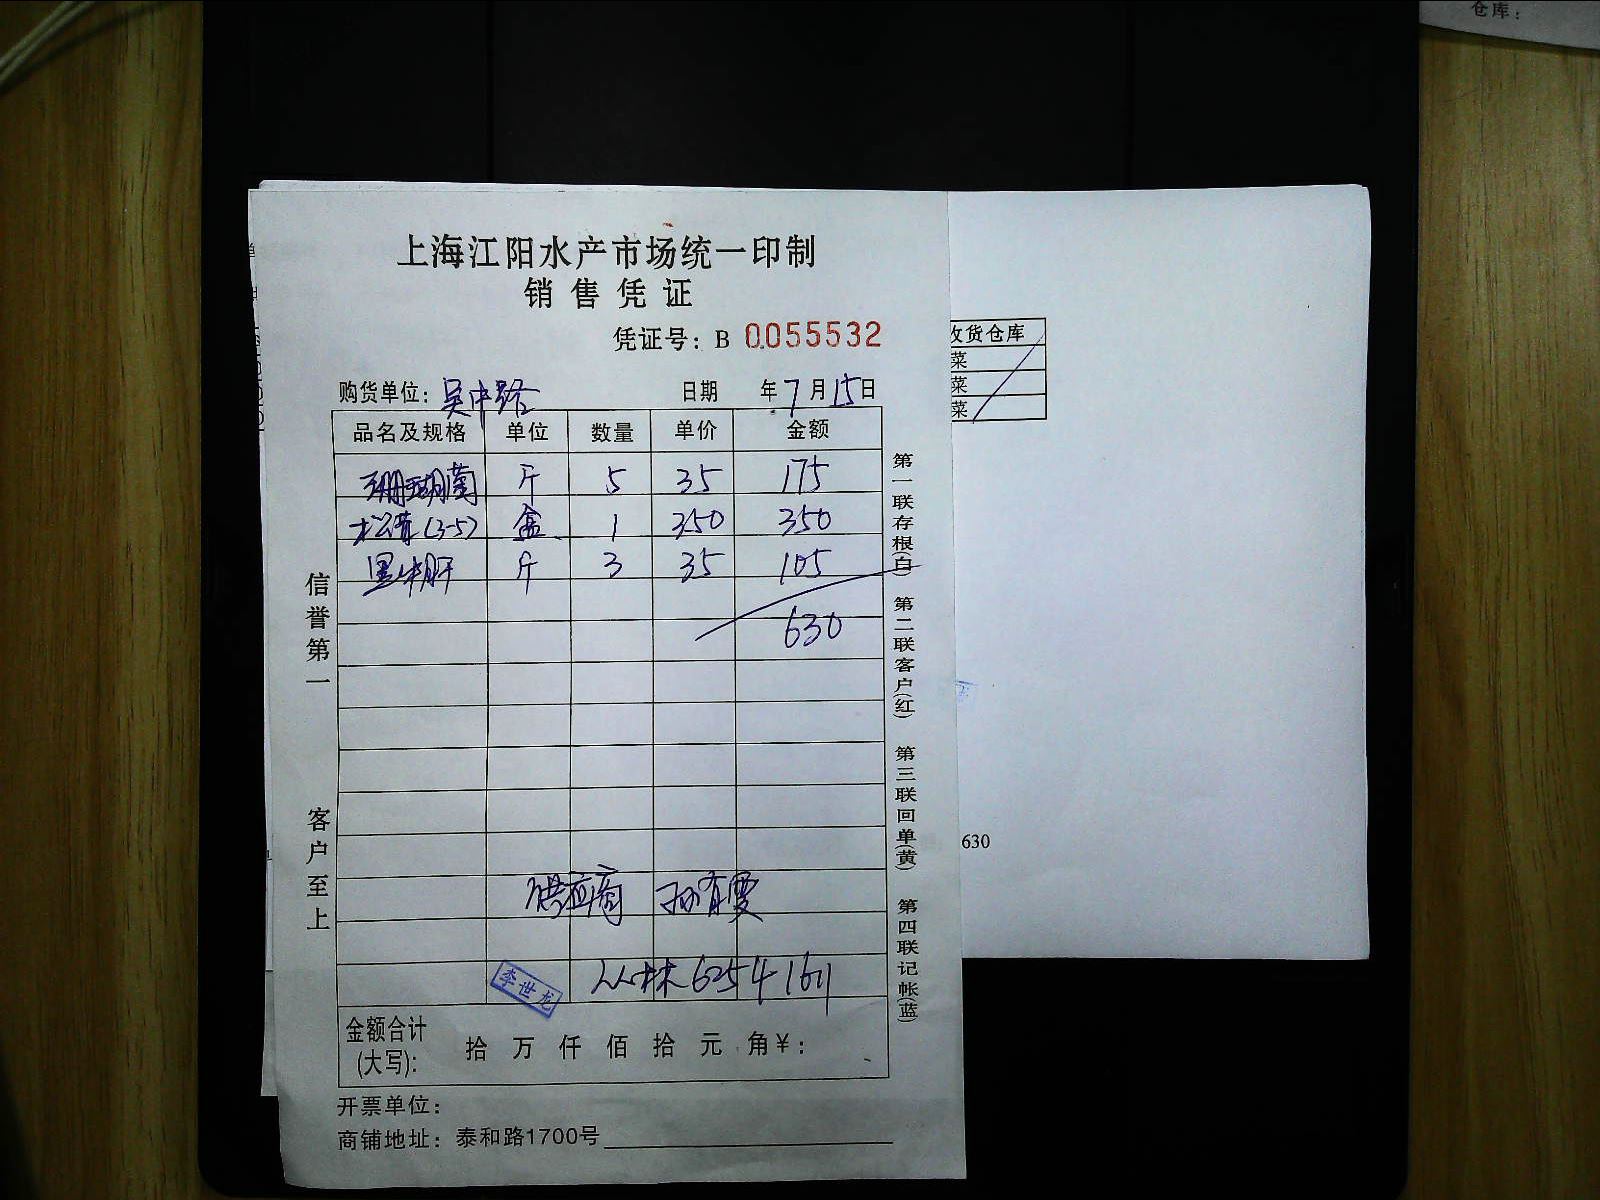 仓库：
上海江阳水产市场统一印制
销售凭证
凭证号：B 0055532
购货单位：吴中路 日期 年7月15日
品名及规格 单位 数量 单价 金额
珊瑚菌 斤 5 35 175
松茸(3-5) 盒 1 350 350
黑牛肝 斤 3 35 105
630
供应商 孙有雯
从林 62541611
李世龙
金额合计
(大写)： 拾 万 仟 佰 拾 元 角 ￥：
开票单位：
商铺地址：泰和路1700号
信誉第一 客户至上
第一联存根(白) 第二联客户(红) 第三联回单(黄) 第四联记帐(蓝)
收货仓库
菜
菜
菜
630